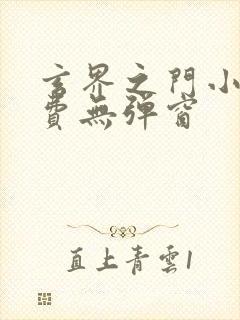 玄界之門小
費無彈窗
直上青雲1